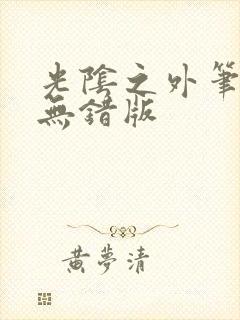 光陰之外筆
無錯版
黃夢清